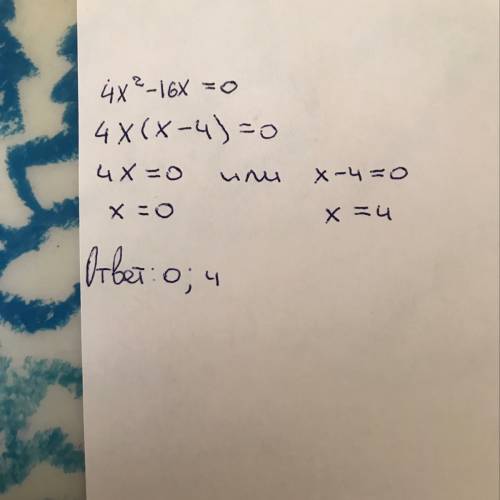 4x²-16x=0
4x(x-4)=0
4x=0 или x-4=0
x=0 x=4
Ответ: 0; 4